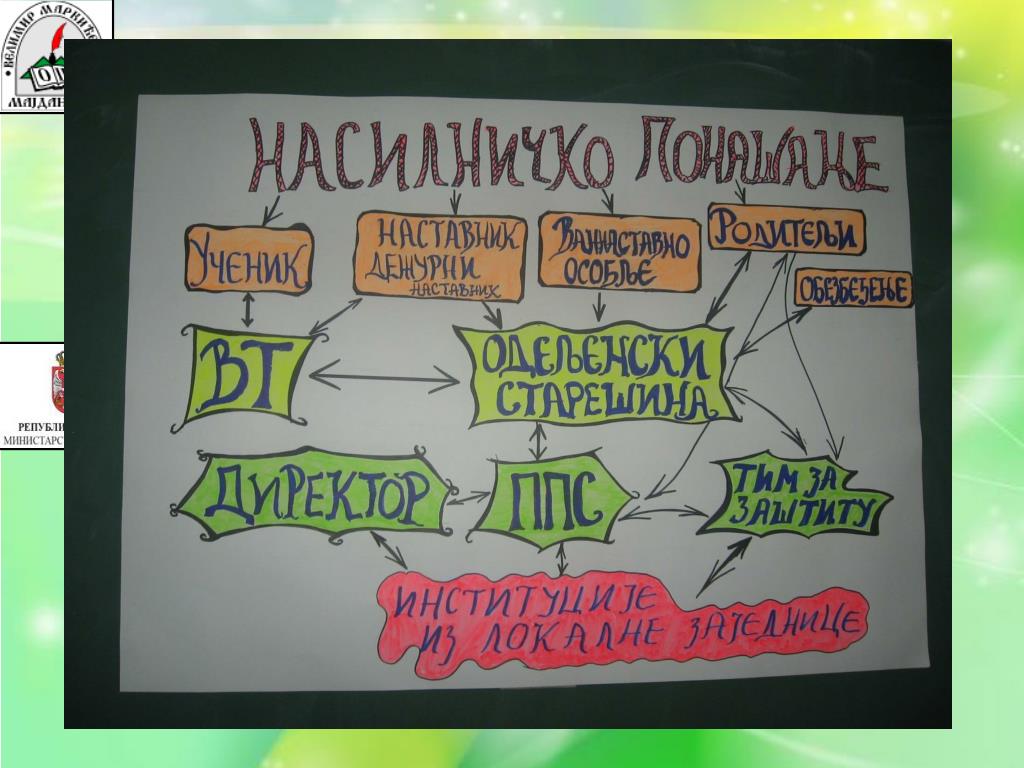 • ВЕЛИМИР МАРКИЋЕ
О
МАЈДАН
РЕПУБЛИ
МИНИСТАРС
НАСИЛНИЧКО ПОНАШАЊЕ
УЧЕНИК
НАСТАВНИК
ДЕЖУРНИ
НАСТАВНИК
ВАННАСТАВНО
ОСОБЉЕ
РОДИТЕЉИ
ОБЕЗБЕЂЕЊЕ
ВТ
ОДЕЉЕНСКИ
СТАРЕШИНА
ДИРЕКТОР
ППС
ТИМ ЗА
ЗАШТИТУ
ИНСТИТУЦИЈЕ
ИЗ ЛОКАЛНЕ ЗАЈЕДНИЦЕ